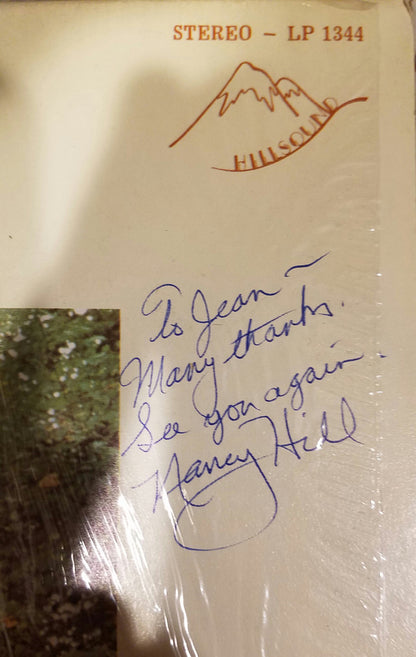 STEREO - LP 1344
HILLSOUND
To Jean ~
Many thanks.
See you again.
Nancy Hill